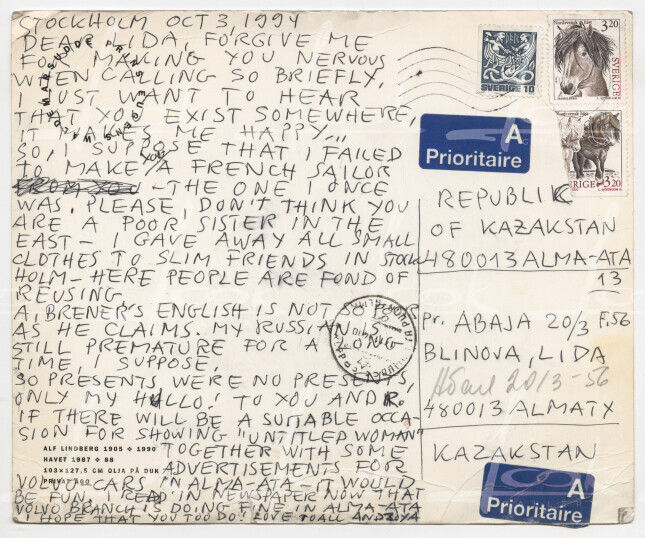 STOCKHOLM OCT 3, 1994
DEAR LIDA, FORGIVE ME
FOR MAKING YOU NERVOUS
WHEN CALLING SO BRIEFLY,
I JUST WANT TO HEAR
THAT YOU EXIST SOMEWHERE,
IT MAKES ME HAPPY...
SO, I SUPPOSE THAT I FAILED
TO MAKE YOU A FRENCH SAILOR
- THE ONE I ONCE
WAS. PLEASE, DON'T THINK YOU
ARE A POOR SISTER IN THE
EAST - I GAVE AWAY ALL SMALL
CLOTHES TO SLIM FRIENDS IN STOCK
HOLM - HERE PEOPLE ARE FOND OF
REUSING.
A. BRENER'S ENGLISH IS NOT SO POOR
AS HE CLAIMS. MY RUSSIAN IS
STILL PREMATURE FOR A LONG
TIME, I SUPPOSE.
SO PRESENTS WERE NO PRESENTS,
ONLY MY HALLO! TO YOU AND R.
IF THERE WILL BE A SUITABLE OCCA-
SION FOR SHOWING "UNTITLED WOMAN"
TOGETHER WITH SOME
ADVERTISEMENTS FOR
VOLVO CARS IN ALMA-ATA - IT WOULD
BE FUN. I READ IN NEWSPAPER NOW THAT
VOLVO BRANCH IS DOING FINE IN ALMA-ATA
I HOPE THAT YOU TOO! LOVE TO ALL AND
ALF LINDBERG 1905 + 1990
HAVET 1987 + 88
103×127,5 CM OLJA PÅ DUK
PRIVAT ÄGO
PRINS EUGENS WALDEMARSUDDE
SVERIGE 10
3,20
SVERIGE
3,20
A
Prioritaire
REPUBLIK
OF KAZAKSTAN
480013 ALMA-ATA
13
Pr. ABAJA 20/3 F.56
BLINOVA, LIDA
Абая 20/3-56
480013 ALMATY
KAZAKSTAN
A
Prioritaire